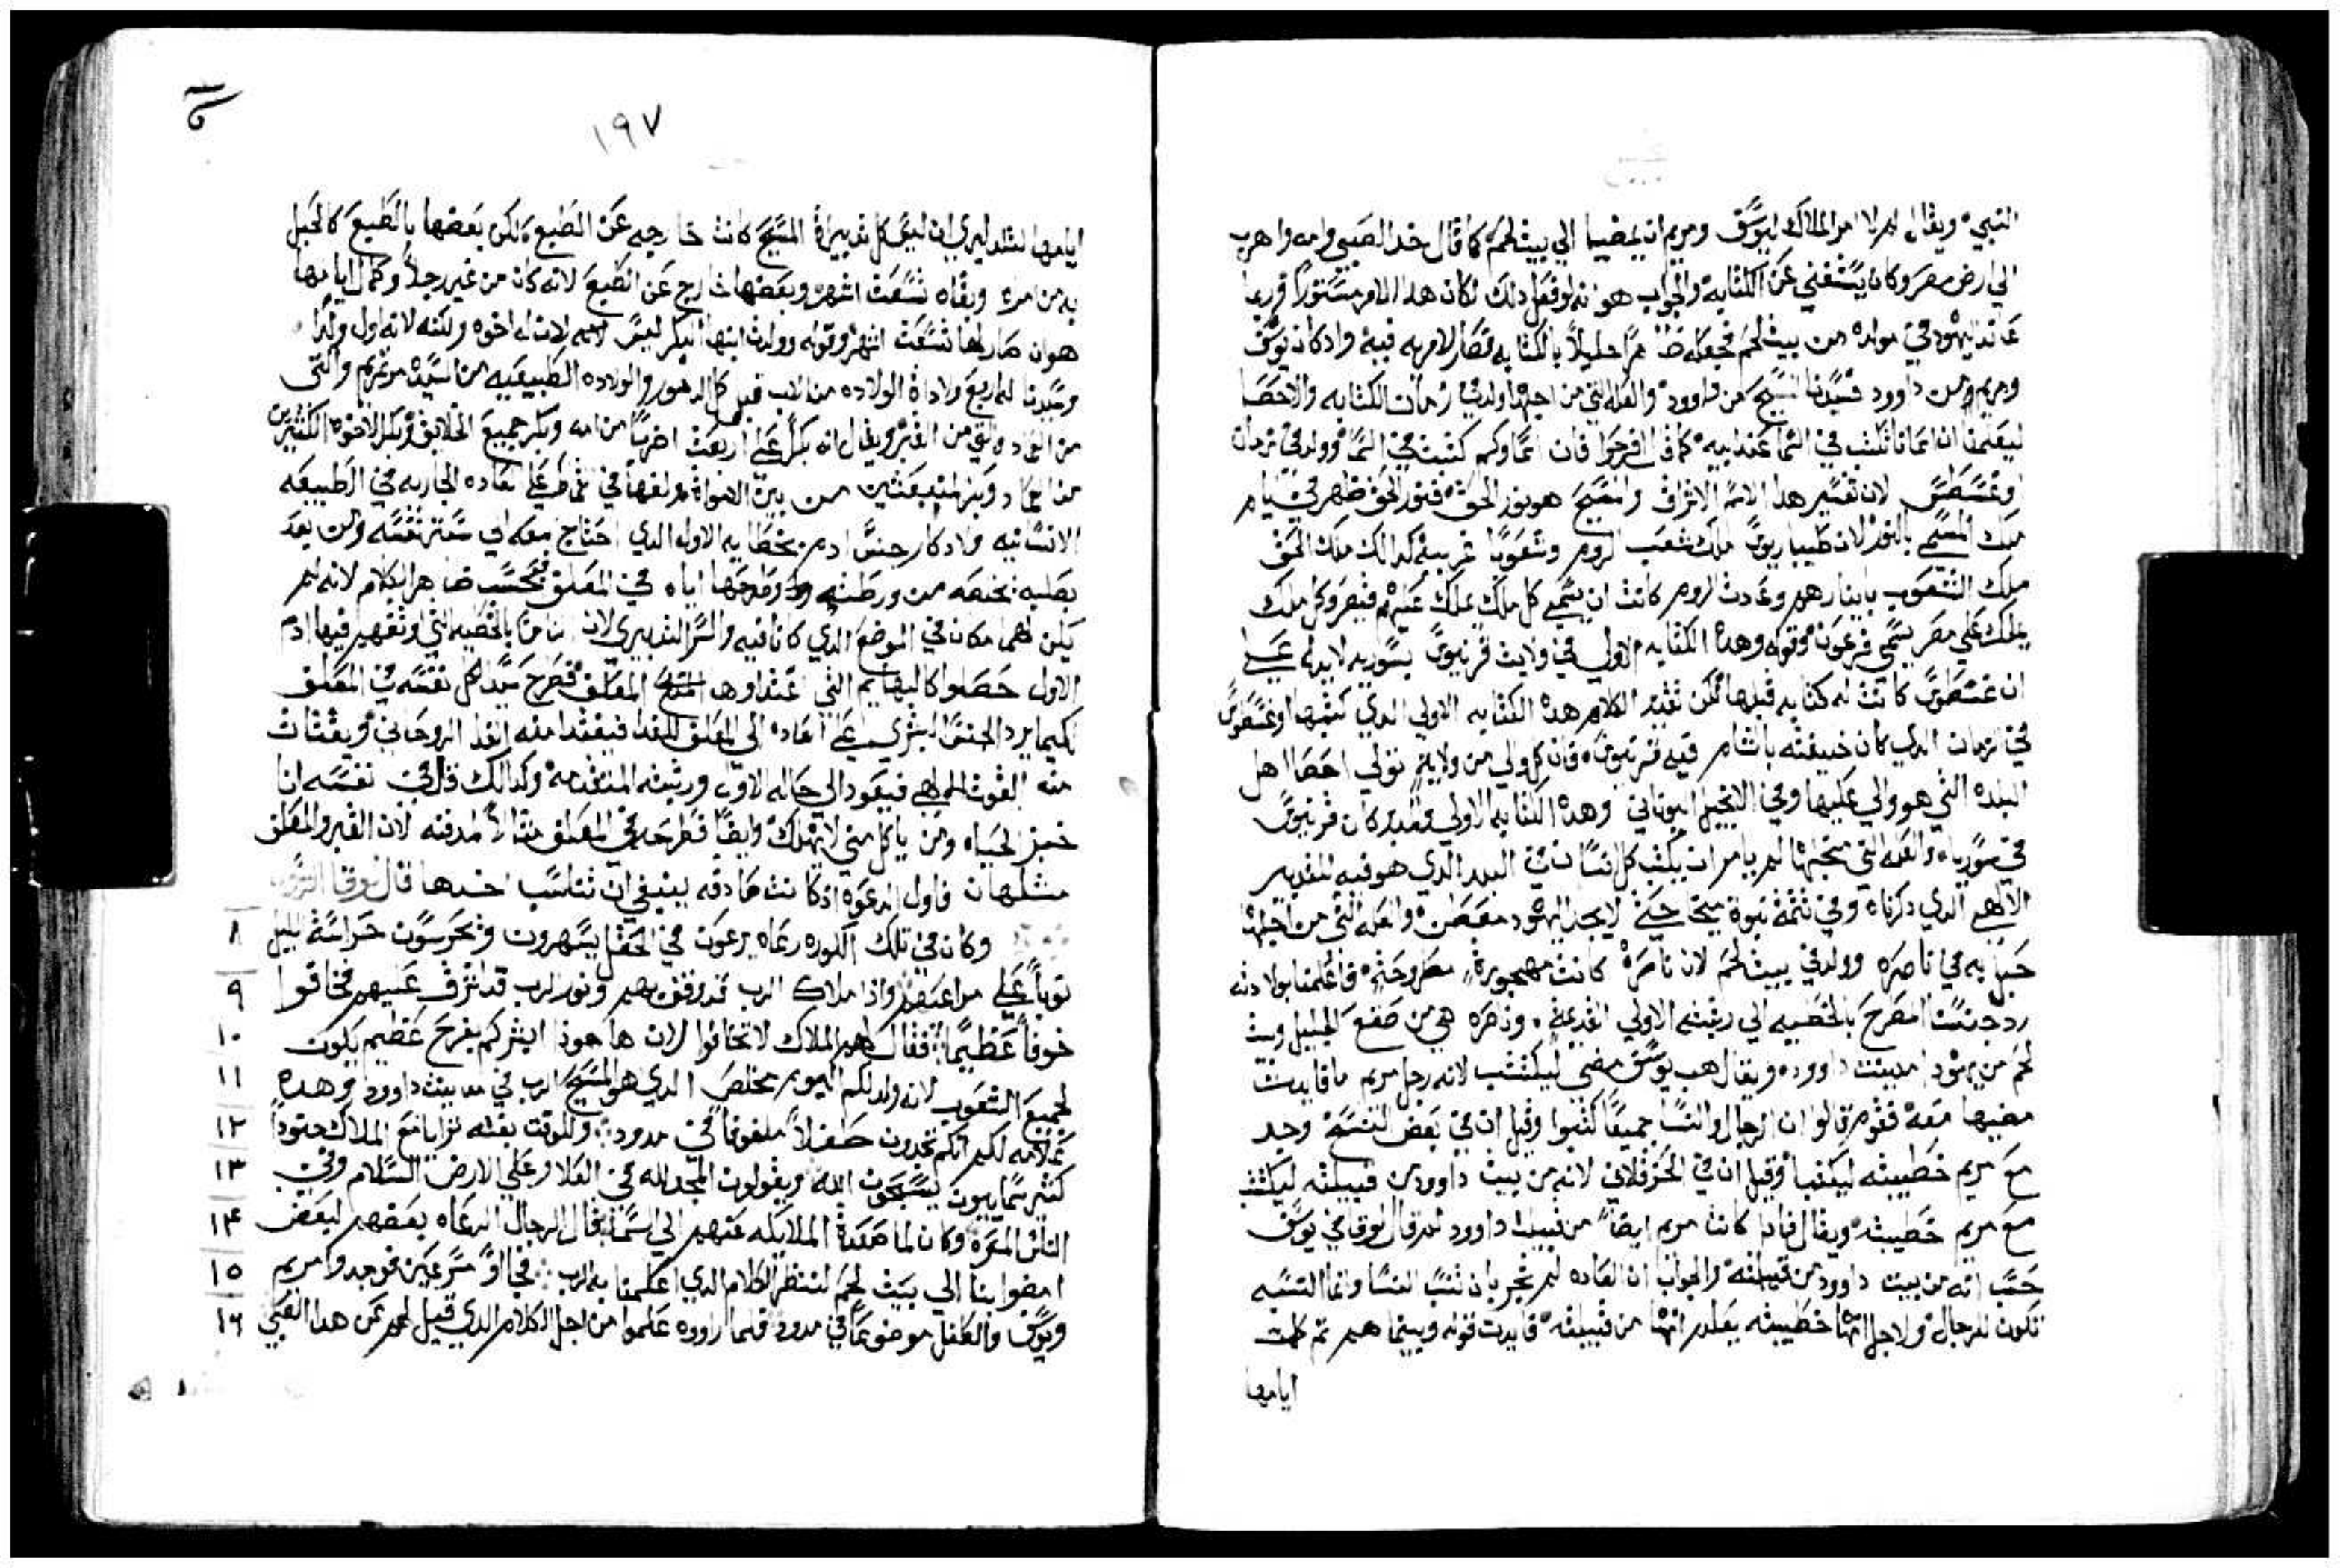 النبي ويقال لم لا امر الملاك ليوسف ومريم ان يمضيا الي بيت لحم كما قال خد الصبي وامه واهرب
الي ارض مصر وكان يستغني عن الكتابه والجواب هو انه لو فعل دلك لكان هدا الامر مستورا وربما
عاند اليهود في مولده من بيت لحم فجعله ظاهرا جليلا بالكتابه فصار لا مريه فيه واد كان يوسف
ومريم من داوود فسيدنا المسيح من داوود والعله التي من اجلها ولد في زمان الكتابه والاحصا
ليعلمنا ان اسمانا تكتب في السما عند ابيه كما قال افرحوا فان اسماوكم كتبت في السما وولد في زمان
اوغسطس لان تفسير هدا الاسم الاشراق والمسيح هو نور الحق فنور الحق ظهر في ايام
ملك المسمي بالنور لان طيباريوس ملك شعب الروم وشعوبا غريبه كدالك ملك الحق
ملك الشعوب باينارهم وعادت الروم كانت ان يسمي كل ملك يملك عليهم قيصر وكل ملك
يملك علي مصر يسمي فرعون وقوله وهده الكتابه الاولي في ولايت قرنيوس بسوريه لا يدل علي
ان غسطوس كانت له كتابه قبلها لكن تقدير الكلام هده الكتابه الاولي الدي كتبها اوغسطوس
في الزمان الدي كان خليفته بالشام فيه قرنيوس فان كل والي من ولايه تولي احصا اهل
البلده التي هو والي عليها وفي الانجيل اليوناني وهده الكتابه الاولي والمدبر كان قرنيوس
في سوريا والعله التي من اجلها لم يامر ان يكتب كل انسان في البلد الدي هو فيه للتدبير
الالهي الدي دكرناه وفي تتمة نبوة ميخا حتي لا يجد اليهود مطعن والعله التي من اجلها
حبل به في ناصره وولد في بيت لحم لان ناصرة كانت مهجورة مطروحة فاعلمنا بولادته
رد جنسنا المطرح بالخطيه الي رتبته الاولي القديمه وناصره هي من صقع الجليل وبيت
لحم من يهودا مدينت داووده ويقال هب يوسف مضي ليكتتب لانه رجل مريم ما فايدت
مضيها معه فقوم قالوا ان الرجال والنسا جميعا كتبوا وقيل ان في بعض النسخ وجد
مع مريم خطيبته ليكتبا وقيل ان في الحرقلاني لانه من بيت داوود من قبيلته ليكتتب
مع مريم خطيبته ويقال فادا كانت مريم ايضا من قبيلت داوود لم قال لوقا في يوسف
حسب انه من بيت داوود من قبيلته والجواب ان العاده لم تجر بان تنسب النسا وانما النسبه
تكون للرجال ولاجل انها خطيبته يعلم انها من قبيلته فايدت قوله وبينما هم تم كملت
ايامها
١٩٧
ايامها لتلد ليري ان ليس كل تدبيراة المسيح كانت خارجه عن الطبع لكن بعضها بالطبع كالحبل
به من امراه وبقاه تسعت اشهر وبعضها خارج عن الطبع لانه كان من غير رجل وكمل ايامها
هو ان صار لها تسعت اشهر وقوله وولدت ابنها البكر ليس لان له اخوه ولكنه لانه اول ولد
وسيدنا له اربع ولاداة الولاده من الاب قبل كل الدهور والولاده الطبيعيه من السيده مرتمريم والتي
من العماد والتي من القبر ويقال انه بكر علي اربعت اضرب من امه وبكر جميع الخلايق وبكر الاخوه الكتيرين
من العماد وبكر المنبعثين من بين الاموات ولفها في قماط علي العاده الجاريه في الطبيعه
الانسانيه واد كان جنس ادم بخطايه الاول الدي احتاج معه الي ستر نفسه ومن بعد
بصلبه خلصه من ورطته وطرحها اياه في المعلف فبحسب ظاهر الكلام لانه لم
يكن لهما مكان في الموضع الدي كانا فيه والسر التدبيري لان بالخطيه التي وتقهر فيها ادم
الاول حصلوا كالبهايم التي غداوها المعلف فطرح سيد الكل نفسه في المعلف
لكيما يرد الجنس البشري علي العاده الي المعلف للغدا فيغتدا منه الغدا الروحاني ويقتات
منه القوت الالهي فيعود الي حاله الاول ورتبته المتقدمه وكدالك قال في نفسه انا
خبز الحياه ومن ياكل مني لا يهلك وايضا فطرحه في المعلف متالا لمدفنه لان القبر والمعلف
متلهان فاول الدعوه اذ كانت صادقه ينبغي ان تناسب اخرها قال لوقا
وكان في تلك الكوره رعاه يرعون في الحقل يسهرون ويحرسون حراسة الليل ٨
نوبا علي مراعيهم واذا ملاك الرب قد وقف بهم ونور الرب قد اشرق عليهم فخافوا ٩
خوفا عظيما فقال لهم الملاك لا تخافوا لان ها هوذا ابشركم بفرح عظيم يكون ١٠
لجميع الشعوب لانه ولد لكم اليوم مخلص الدي هو المسيح الرب في مدينت داوود وهده ١١
علامه لكم انكم تجدون طفلا ملفوفا في مدود وللوقت بغته ترايا مع الملاك جنودا ١٢
كتير سماييون يسبحون الله ويقولون المجد لله في العلا وعلي الارض السلام وفي ١٣
الناس المسره وكان لما صعدة الملايكه عنهم الي السما قال الرجال الرعاه بعضهم لبعض ١٤
امضوا بنا الي بيت لحم لننظر الكلام الدي اعلمنا به الرب فجاوا مسرعين فوجدوا مريم ١٥
ويوسف والطفل موضوعا في مدود فلما راووه علموا من اجل الكلام الدي قيل لهم عن هدا الصبي ١٦